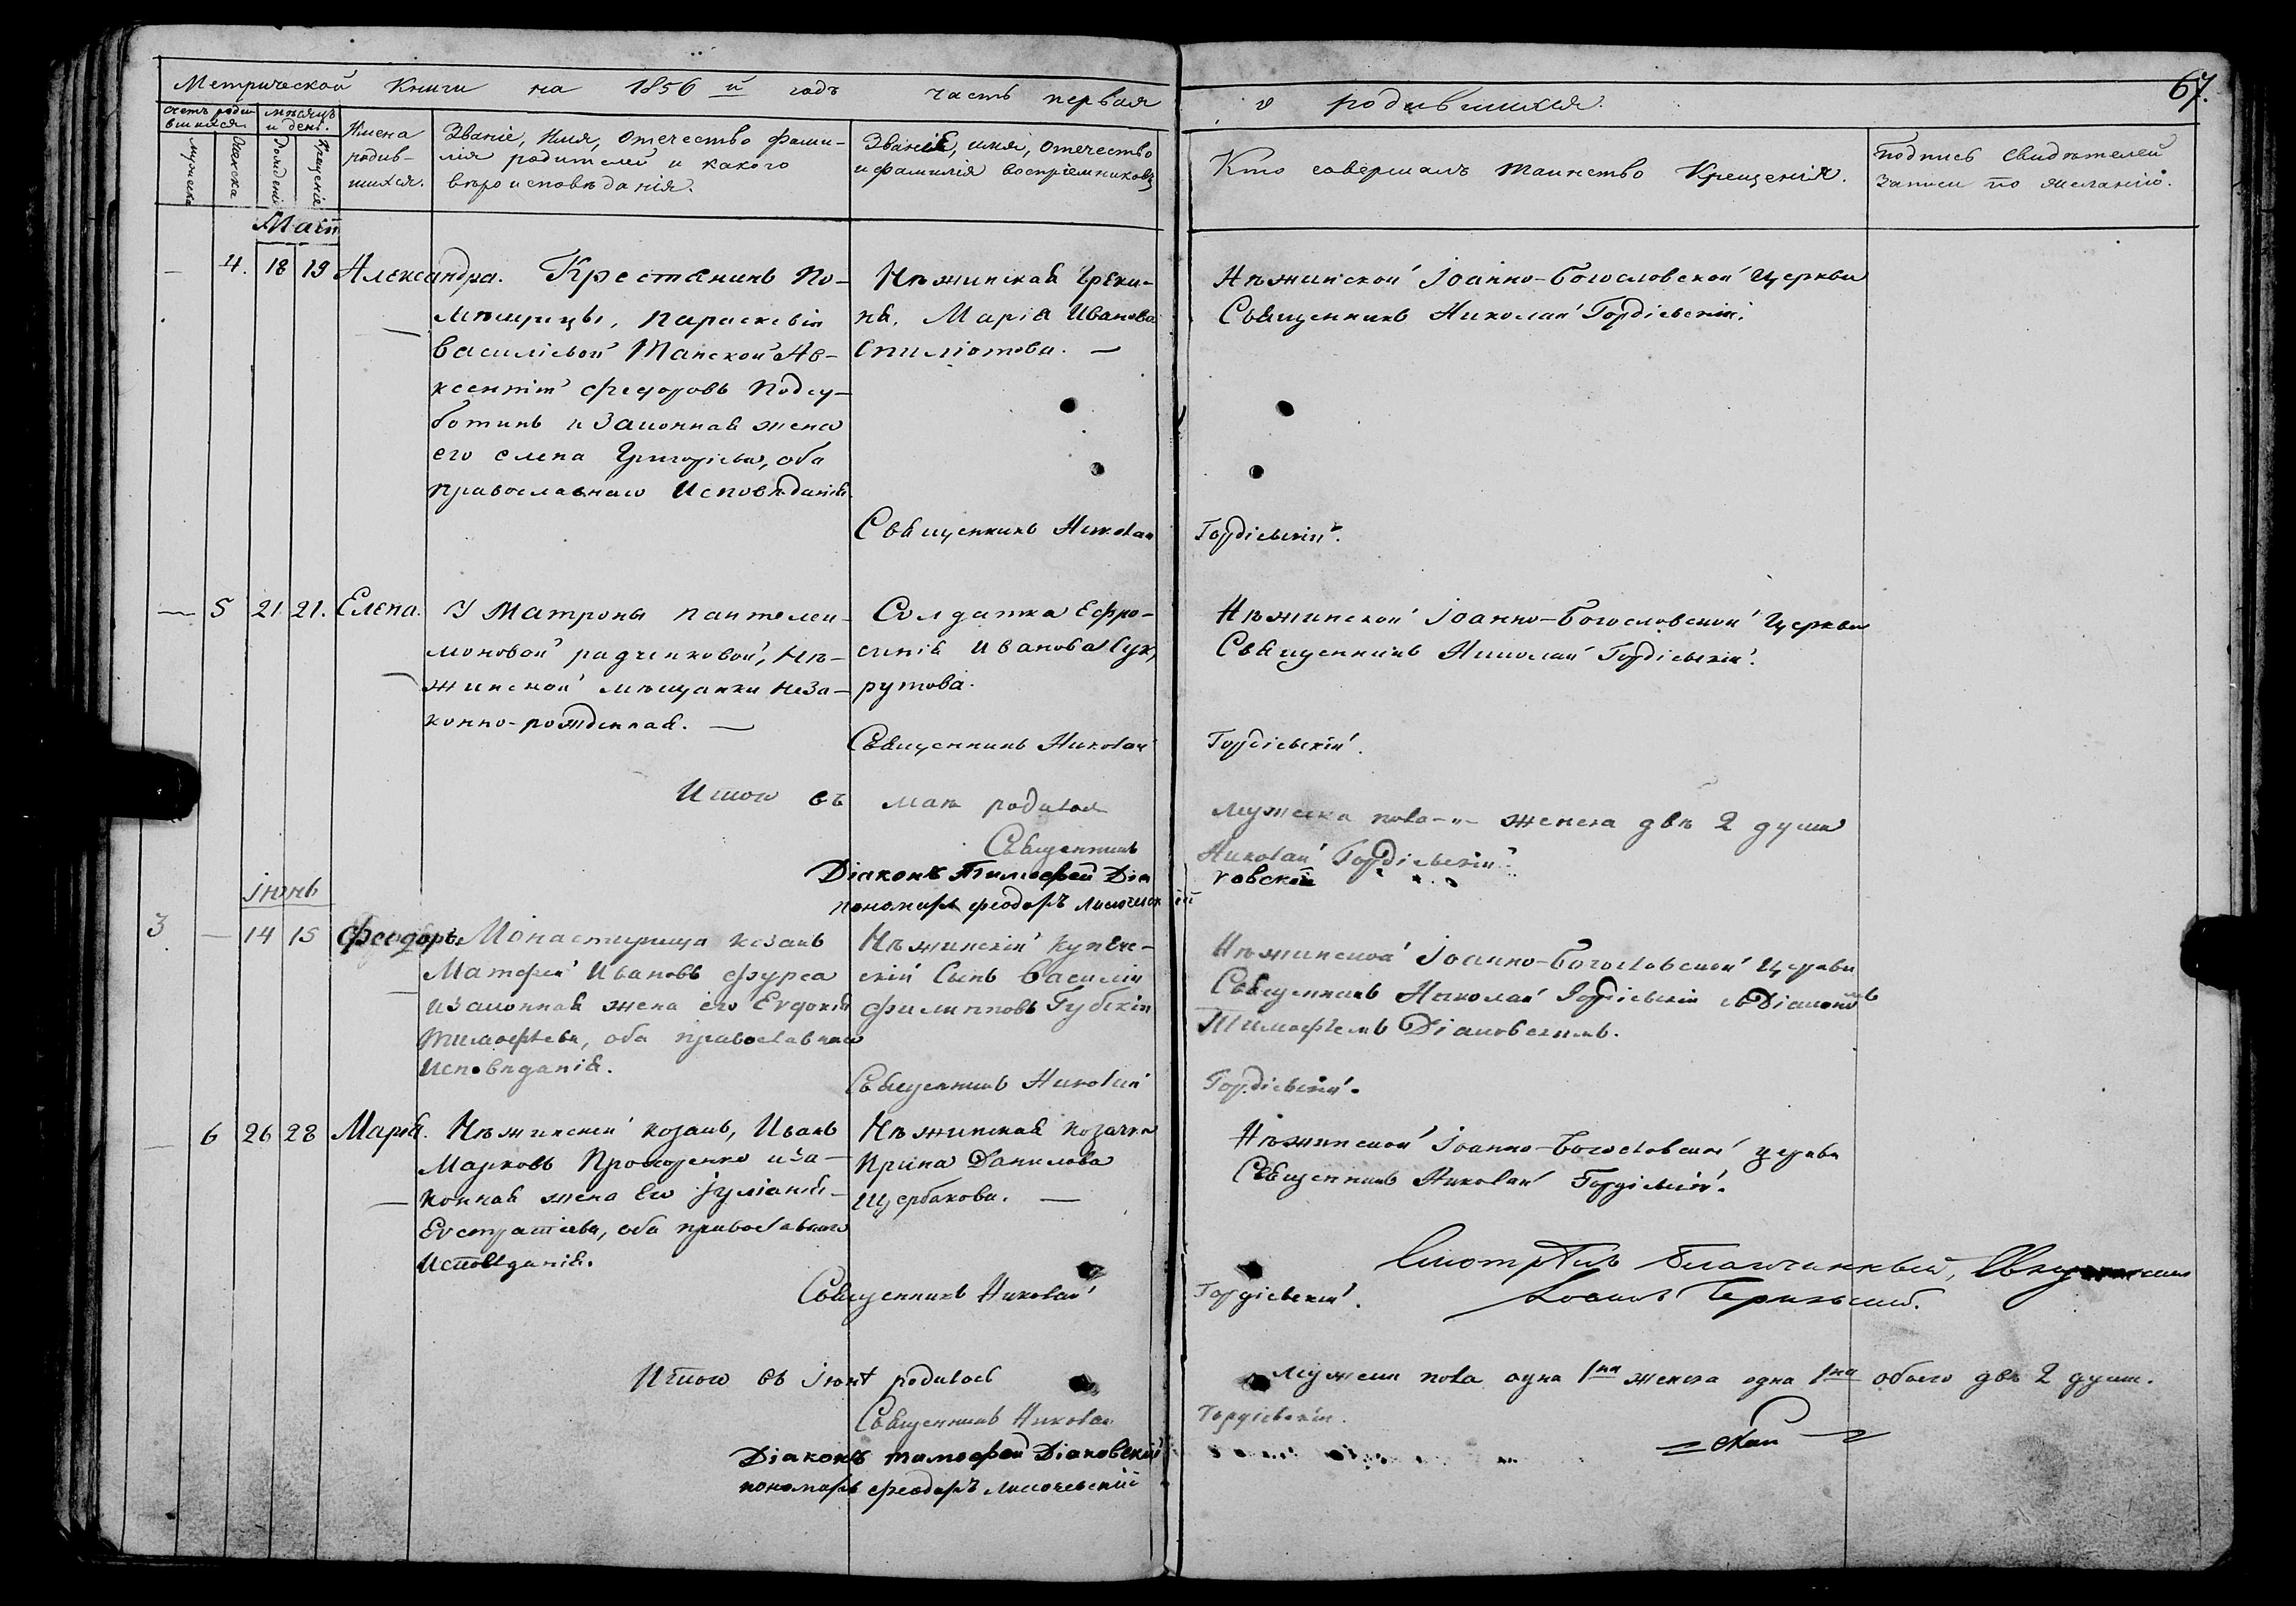 67.
Метрической Книги на 1856й годъ часть первая о родившихся.
Счетъ родившихся
мѣсяцъ и день.
Мужеска
Женска
Рожденія
Крещенія
Имена родив-
шихся.
Званіе, Имя, Отечество фами-
лія родителей и какого
вѣроисповѣданія.
Званіе, имя, отечество
и фамилія воспріемниковъ
Кто совершалъ таинство Крещенія.
Подпись свидѣтелей
записи по желанію.
Маій
— 4. 18 19 Александра. Крестянинъ По-
мѣщицы, Параскевіи
Василіевой Танской Ав-
ксентій Феодоровъ Подсу-
ботинъ и законная жена
его Елена Григоріева, оба
православнаго Исповѣданія
Нѣжинская Греки-
ня, Марія Иванова
Спиліотова. —
Нѣжинской Іоанно-Богословской Церкви
Священникъ Николай Гордіевскій.
Священникъ Николай Гордіевскій.
— 5 21 21. Елена. У Матроны Пантелей-
моновой Радченковой, Нѣ-
жинской мѣщанки неза-
конно-рожденная. —
Солдатка Ефро-
синія Иванова Сук
рутова.
Нѣжинской Іоанно-Богословской Церкви
Священникъ Николай Гордіевскій.
Священникъ Николай Гордіевскій.
Итого въ маѣ родилося мужеска пола -"- женска двѣ 2 души
Священникъ Николай Гордіевскій
Діаконъ Тимофей Діаковскій
пономарь Феодоръ
Іюнь
3 — 14 15 Феодоръ. Монастырища козакъ
Матфей Ивановъ Фурса
и законная жена его Евдокія
Тимофѣева, оба православнаго
Исповѣданія.
Нѣжинскій купече-
скій Сынъ Василій
Филипповъ Губкін
Нѣжинской Іоанно-Богословской Церкви
Священникъ Николай Гордіевскій съ Діакономъ
Тимофѣемъ Діаковскимъ.
Священникъ Николай Гордіевскій.
— 6 26 28 Марія. Нѣжинскій козакъ, Иванъ
Марковъ Прохоренко и за-
конная жена Его Іуліанія
Евстратіева, оба православнаго
Исповѣданія.
Нѣжинская козачка
Ирина Данилова
Щербакова. —
Нѣжинской Іоанно-Богословской церкви
Священникъ Николай Гордіевскій.
Смотрѣлъ Благочинный, Священникъ
Іоаннъ
Священникъ Николай Гордіевскій.
Итого въ Іюнѣ родилось мужеска пола одна 1на женска одна 1на обоего двѣ 2 души.
Священникъ Николай Гордіевскій.
Діаконъ Тимофей Діаковскій
пономарь Феодоръ